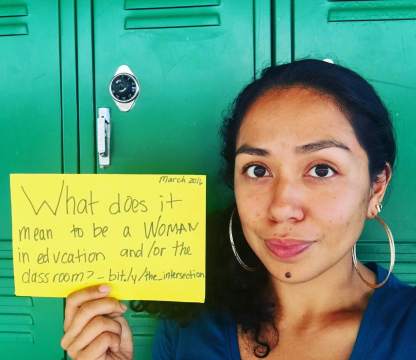 March 2016
What does it
mean to be a WOMAN
in education and/or the
classroom? - bit.ly/the_intersection